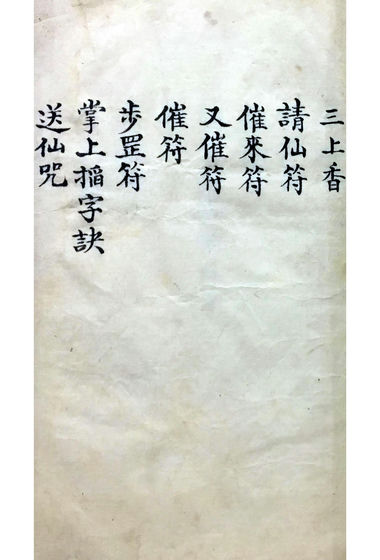 三上香
請仙符
催來符
又催符
催符
步罡符
掌上掐字訣
送仙咒